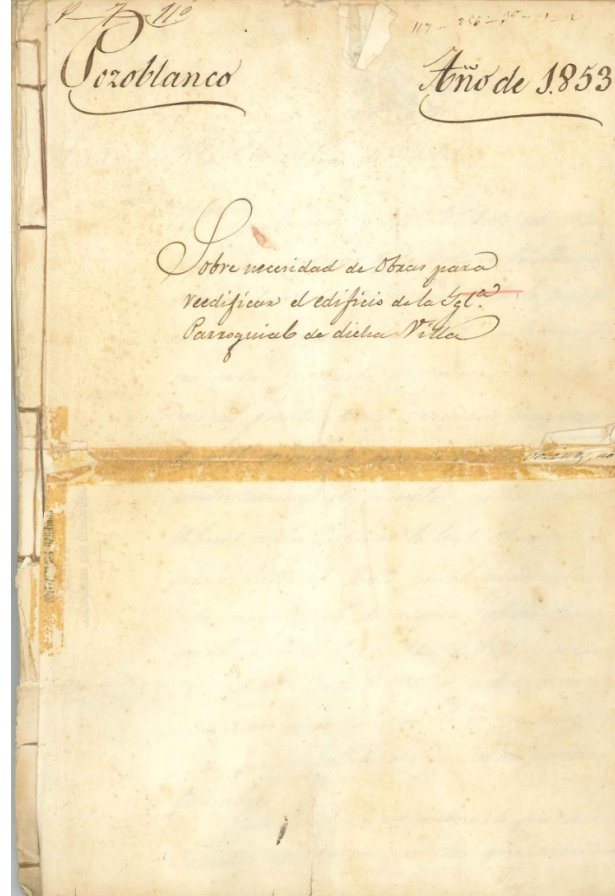 Pozoblanco
Año de 1.853
Sobre necesidad de Obras para
reedificar el edificio de la Igl.ª
Parroquial de dicha Villa